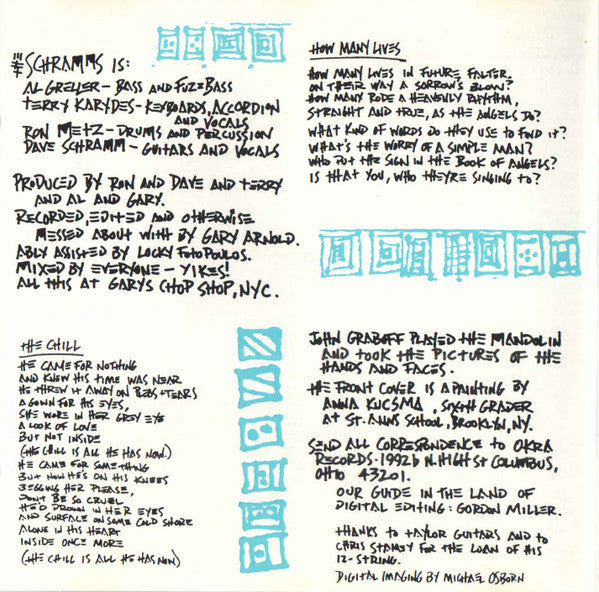 THE SCHRAMMS IS:
AL GRELLER - BASS AND FUZZBASS
TERRY KARYDES - KEYBOARDS, ACCORDION
AND VOCALS
RON METZ - DRUMS AND PERCUSSION
DAVE SCHRAMM - GUITARS AND VOCALS
PRODUCED BY RON AND DAVE AND TERRY
AND AL AND GARY.
RECORDED, EDITED AND OTHERWISE
MESSED ABOUT WITH BY GARY ARNOLD.
ABLY ASSISTED BY LOCKY FOTOPOULOS.
MIXED BY EVERYONE - YIKES!
ALL THIS AT GARYS CHOP SHOP, NYC.
THE CHILL
HE CAME FOR NOTHING
AND KNEW HIS TIME WAS NEAR
HE THREW IT AWAY ON TEARS
A GOWN FOR HIS EYES,
SHE WORE IN HER GREY EYE
A LOOK OF LOVE
BUT NOT INSIDE
(THE CHILL IS ALL HE HAS NOW.)
HE CAME FOR SOMETHING
BUT NOW HE'S ON HIS KNEES
BEGGING HER PLEASE,
DON'T BE SO CRUEL
HE'D DROWN IN HER EYES
AND SURFACE ON SOME COLD SHORE
ALONE IN HIS HEART
INSIDE ONCE MORE
(THE CHILL IS ALL HE HAS NOW)
HOW MANY LIVES
HOW MANY LIVES IN FUTURE FALTER
ON THEIR WAY A SORROW'S BLOWN?
HOW MANY RODE A HEAVENLY RHYTHM,
STRAIGHT AND TRUE, AS THE ANGELS DO?
WHAT KIND OF WORDS DO THEY USE TO FIND IT?
WHAT'S THE WORRY OF A SIMPLE MAN?
WHO PUT THE SIGN IN THE BOOK OF ANGELS?
IS THAT YOU, WHO THEY'RE SINGING TO?
JOHN GRABOFF PLAYED THE MANDOLIN
AND TOOK THE PICTURES OF THE
HANDS AND FACES.
THE FRONT COVER IS A PAINTING BY
ANNA KUCSMA, SIXTH GRADER
AT ST. ANNS SCHOOL, BROOKLYN, NY.
SEND ALL CORRESPONDENCE TO OKRA
RECORDS - 1992b N. HIGH ST COLUMBUS,
OHIO 43201.
OUR GUIDE IN THE LAND OF
DIGITAL EDITING: GORDON MILLER.
THANKS TO TAYLOR GUITARS AND TO
CHRIS STAMEY FOR THE LOAN OF HIS
12-STRING.
DIGITAL IMAGING BY MICHAEL OSBORN